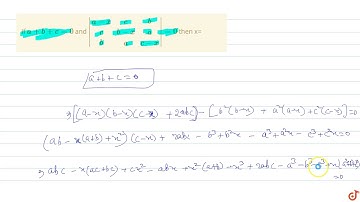 If a + b + c = 0 and | a-x c b | = 0 then x=
| c b-x a |
| b a c-x |
a+b+c=0
⇒ [(a-x)(b-x)(c-x) + 2abc] - [b²(b-x) + a²(a-x) + c²(c-x)] = 0
(ab - x(a+b) + x²)(c-x) + 2abc - b³ + b²x - a³ + a²x - c³ + c²x = 0
⇒ abc - x(ac+bc) + cx² - abx + x²(a+b) - x³ + 2abc - a³ - b³ - c³
= 0